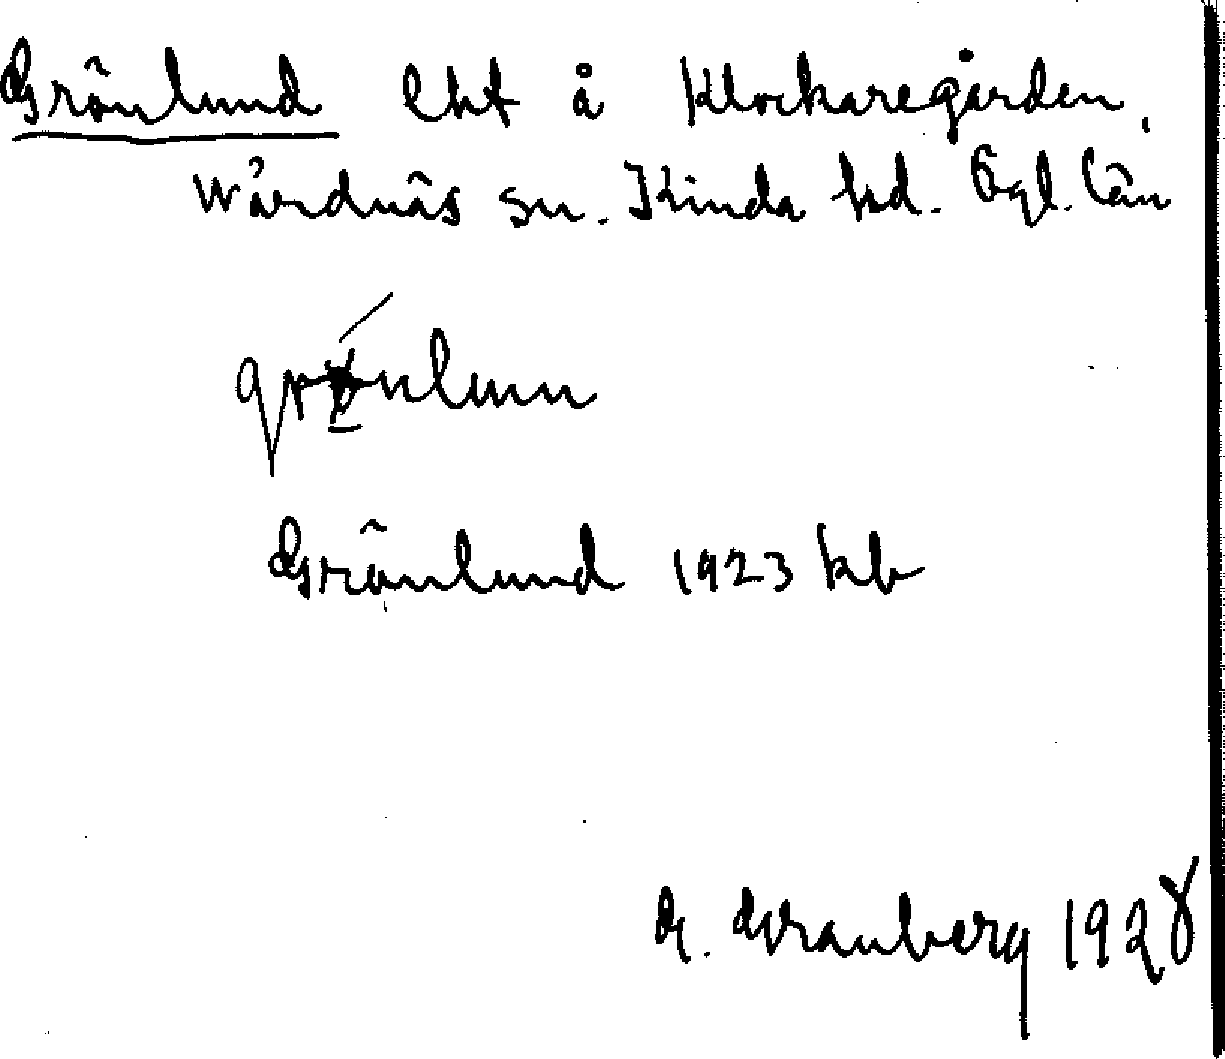 Grönlund lht å Klockaregården,
Wårdnäs sn. Kinda hd. Ögl. län
grönlunn
Grönlund 1923 kb
G. Granberg 1928